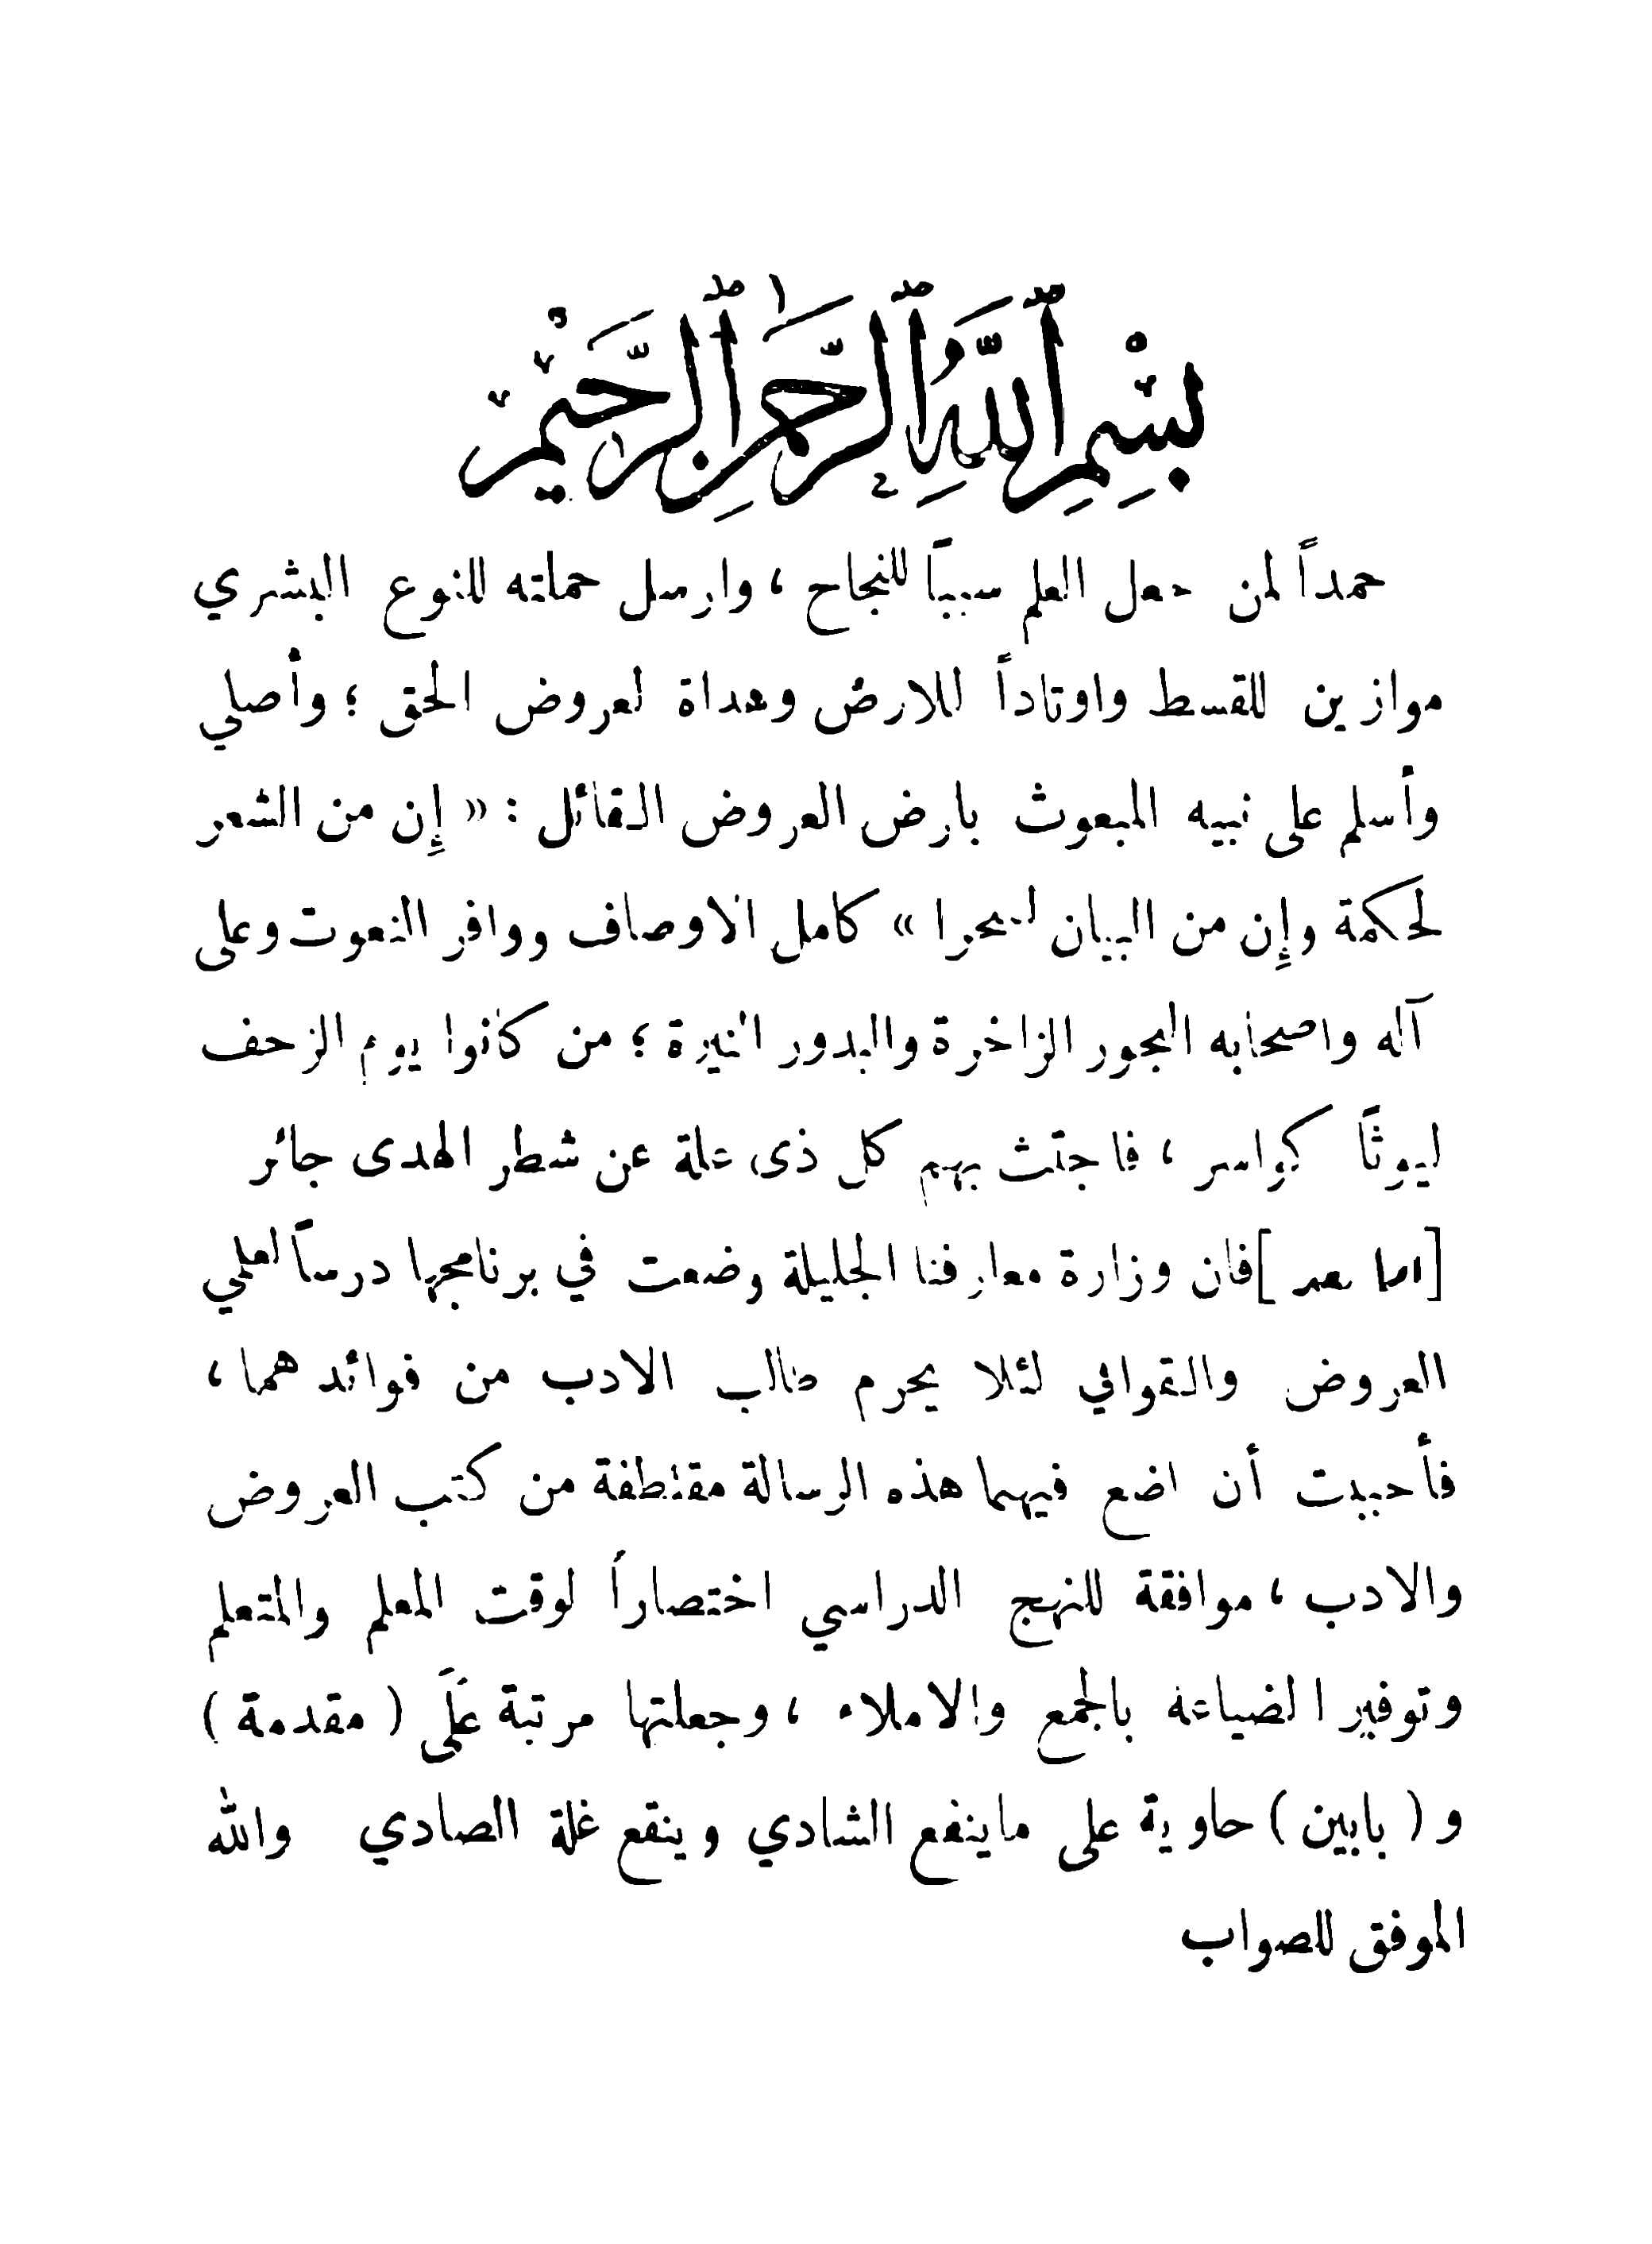 بِسْمِ ٱللَّهِ ٱلرَّحْمَٰنِ ٱلرَّحِيمِ
حمداً لمن جعل العلم سبباً للنجاح ، وارسل حملته للنوع البشري
موازين للقسط واوتاداً للارض وهداة لعروض الحق ؛ وأصلي
وأسلم على نبيه المبعوث بارض العروض القائل : « إِن من الشعر
لحكمة وإِن من البيان لسحرا » كامل الاوصاف ووافر النعوت وعلى
آله واصحابه البحور الزاخرة والبدور النيرة ؛ من كانوا يوم الزحف
ليوثاً كواسر ، فاجتث بهم كل ذى علة عن شطر الهدى جائر
[اما بعد] فان وزارة معارفنا الجليلة وضعت في برنامجها درساً لعلمي
العروض والقوافي لئلا يحرم طالب الادب من فوائدهما ،
فأحببت أن اضع فيهما هذه الرسالة مقتطفة من كتب العروض
والادب ، موافقة للنهج الدراسي اختصاراً لوقت المعلم والمتعلم
وتوفيرا لضياعه بالجمع والاملاء ، وجعلتها مرتبة عَلَى ( مقدمة )
و ( بابين ) حاوية على ماينفع الشادي وينقع غلة الصادي والله
الموفق للصواب